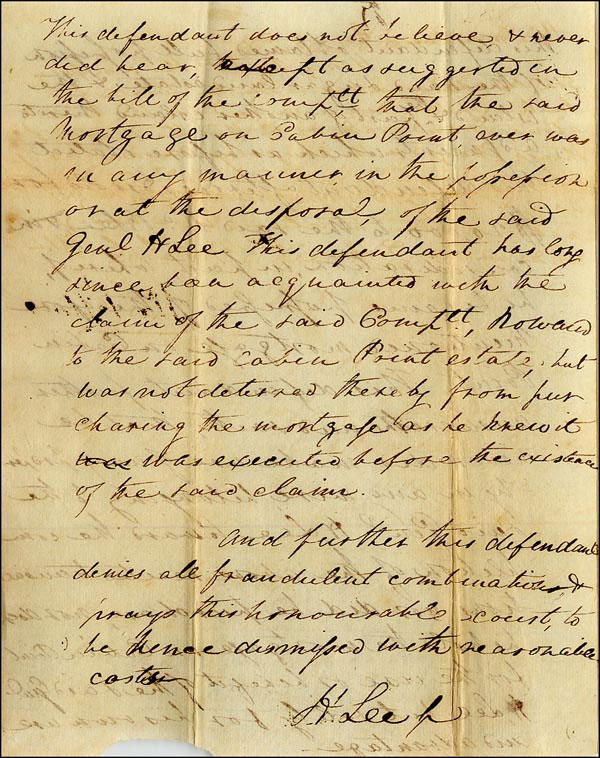 This defendant does not believe & never
did hear, except as suggested in
the bill of the Comptt that the said
Mortgage on Cabin Point, ever was
in any manner in the possession
or at the disposal, of the said
Genl H Lee This defendant has long
since been acquainted with the
claim of the said Comptt,
to the said Cabin Point estate, but
was not deterred thereby from pur
chasing the mortgage as he knew it
was was executed before the existence
of the said claim.
And further this defendant
denies all fraudulent combinations, &
prays this honourable court, to
be hence dismissed with reasonable
costs
H. Lee